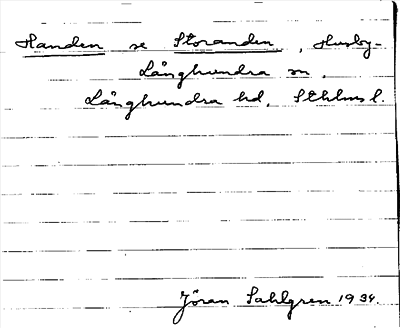 Handen se Storanden, Husby-
Långhundra sn,
Långhundra hd, Sthlms l.
Jöran Sahlgren 1934.